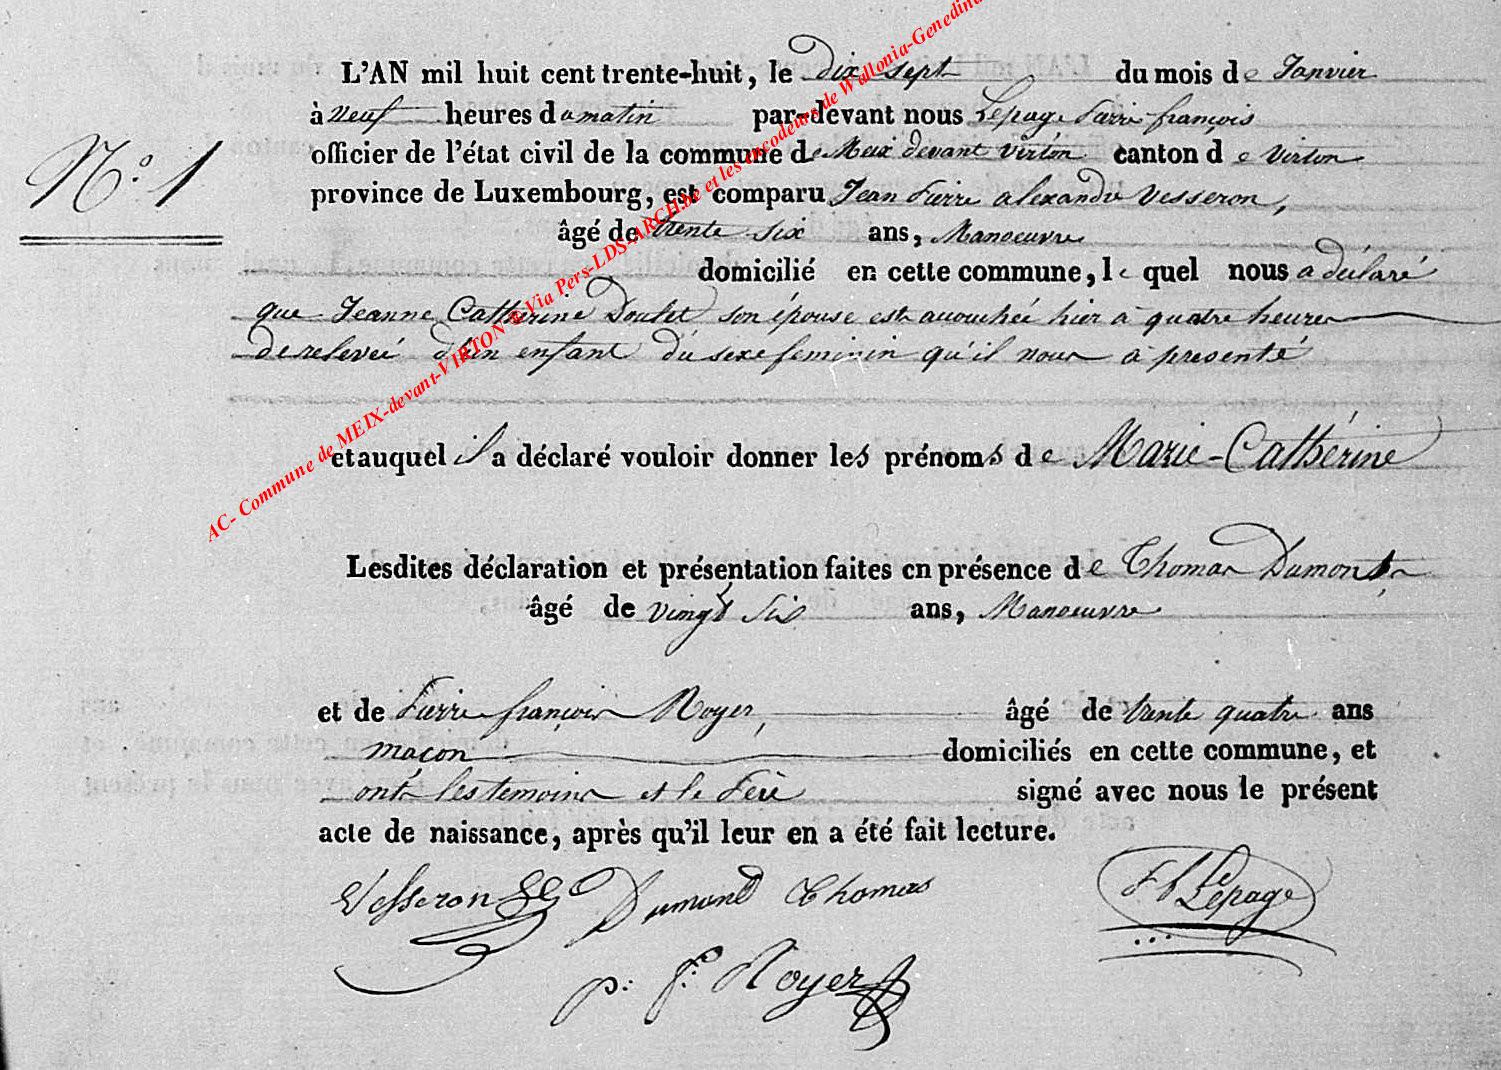 L'AN mil huit cent trente-huit, le dix sept du mois de Janvier
à neuf heures du matin par-devant nous Lepage Pierre françois
N.° 1
officier de l'état civil de la commune de Meix devant virton canton de virton
province de Luxembourg, est comparu Jean Pierre alexandre Vesseron,
âgé de trente six ans, Manoeuvre
domicilié en cette commune, le quel nous a déclaré
que Jeanne Catherine Doulet son épouse est accouchée hier à quatre heures
de relevée d'un enfant du sexe feminin qu'il nous à presenté
et auquel il a déclaré vouloir donner les prénoms de Marie-Cathérine
Lesdites déclaration et présentation faites en présence de Thomas Dumont
âgé de vingt six ans, Manoeuvre
et de Pierre françois Royer, âgé de trente quatre ans
maçon domiciliés en cette commune, et
ont les temoins et le Père signé avec nous le présent
acte de naissance, après qu'il leur en a été fait lecture.
Vesseron Dumond Thomas Lepage
p: f: Royer
AC- Commune de MEIX-devant-VIRTON & Via Pers-LDS-ARCH.be et les encodeurs de Wallonia-Genedina